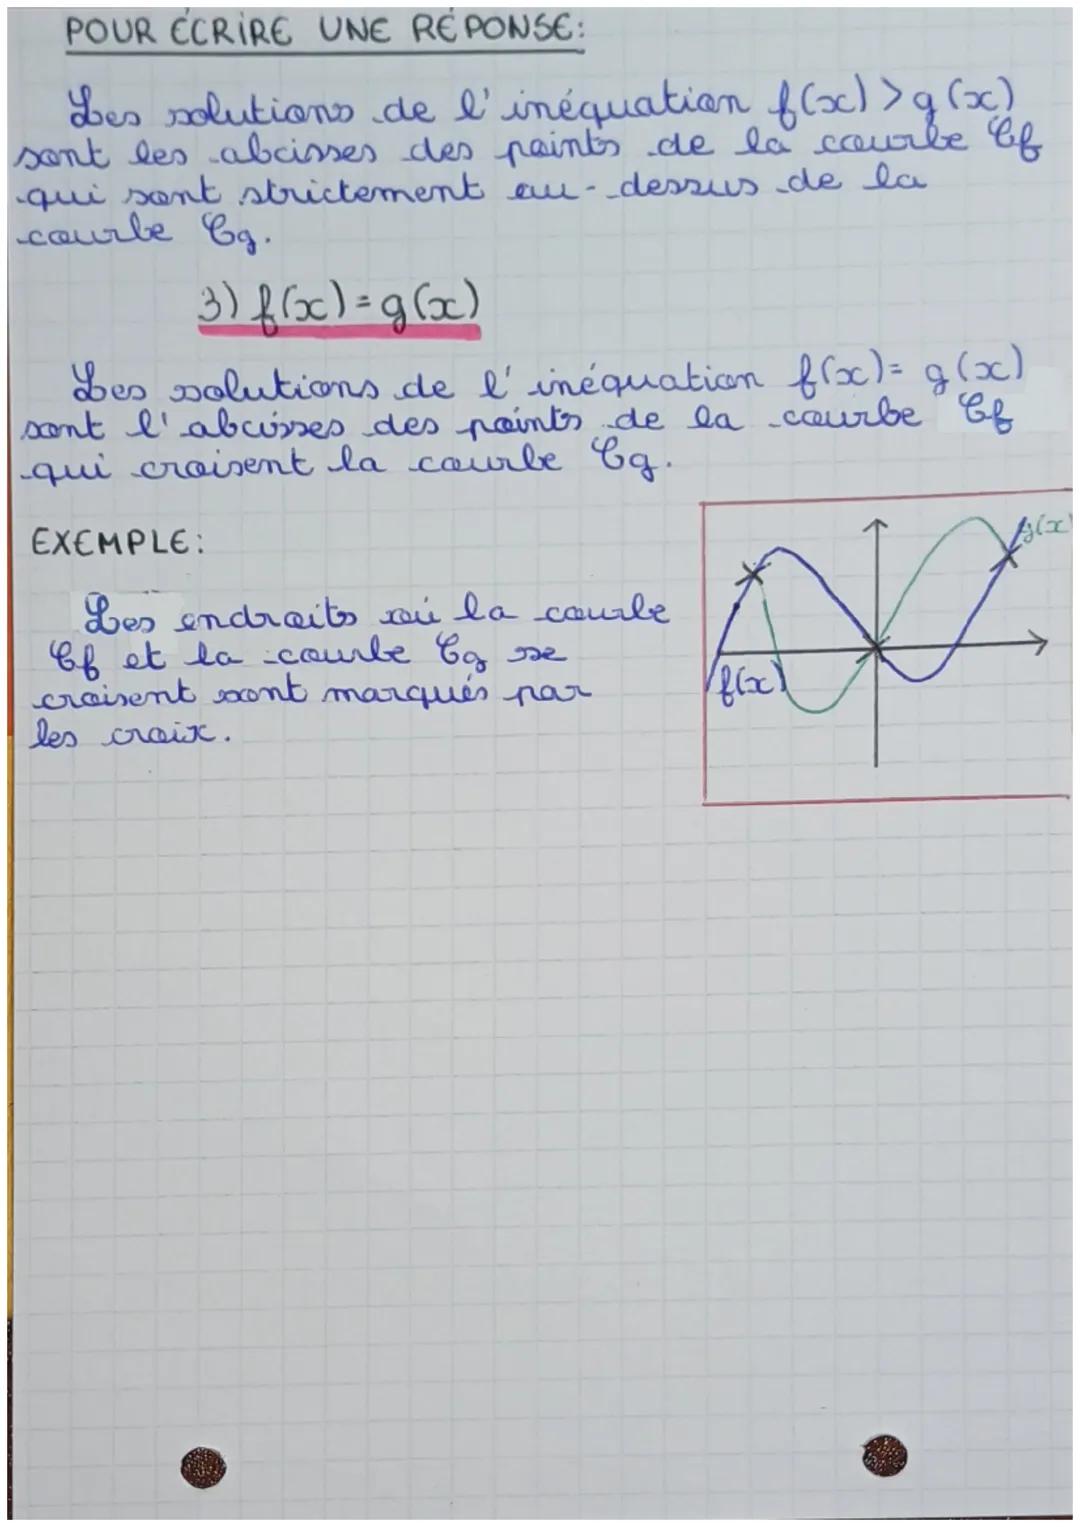 POUR ÉCRIRE UNE RÉPONSE:
Les solutions de l'inéquation f(x) > g(x)
sont les abcisses des points de la courbe Cf
qui sont strictement au-dessus de la
courbe Cg.
3) f(x) = g(x)
Les solutions de l'inéquation f(x) = g(x)
sont l'abcisses des points de la courbe Cf
qui croisent la courbe Cg.
EXEMPLE:
Les endroits où la courbe
Cf et la courbe Cg se
croisent sont marqués par
les croix.
g(x)
f(x)